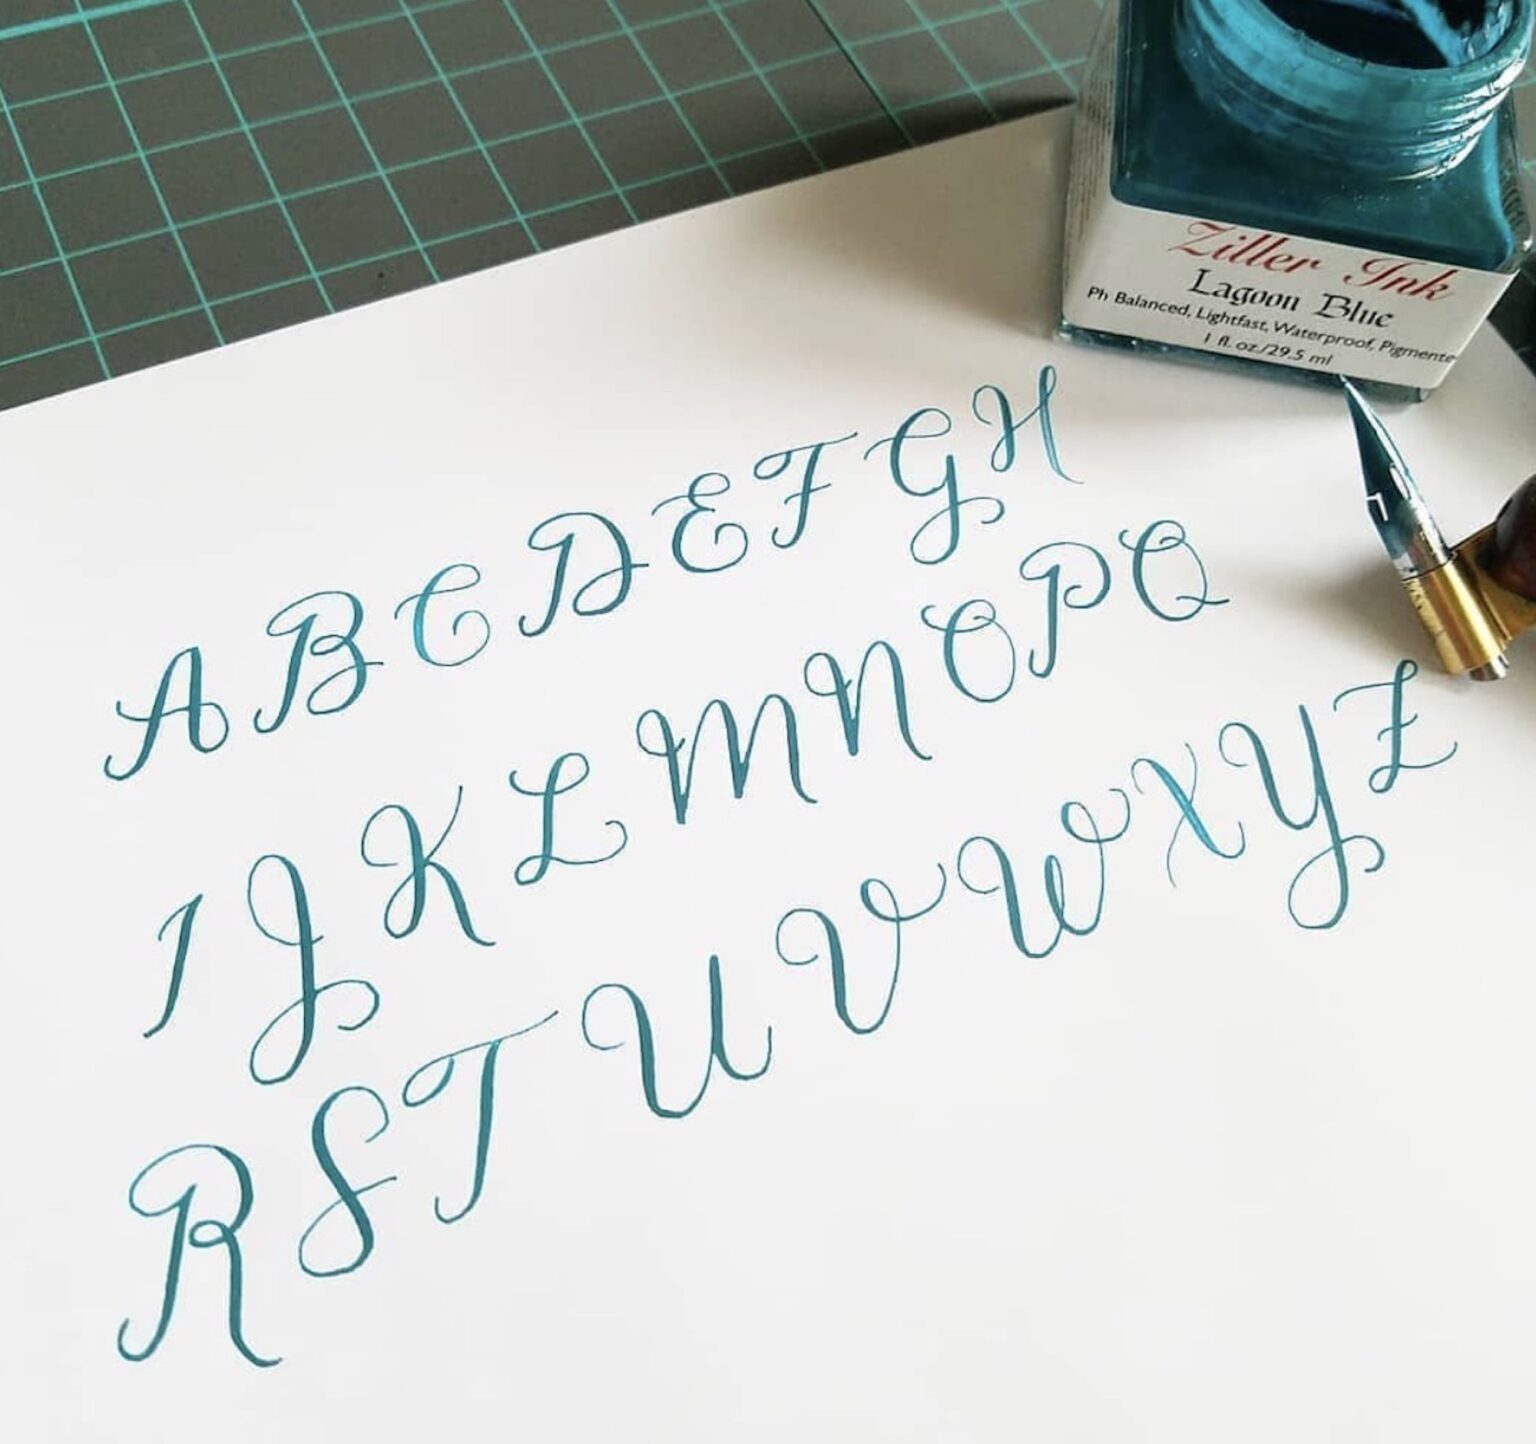 Ziller Ink
Lagoon Blue
Ph Balanced, Lightfast, Waterproof, Pigmente
1 fl. oz./29.5 ml
A B C D E F G H
I J K L M N O P Q
R S T U V W X Y Z